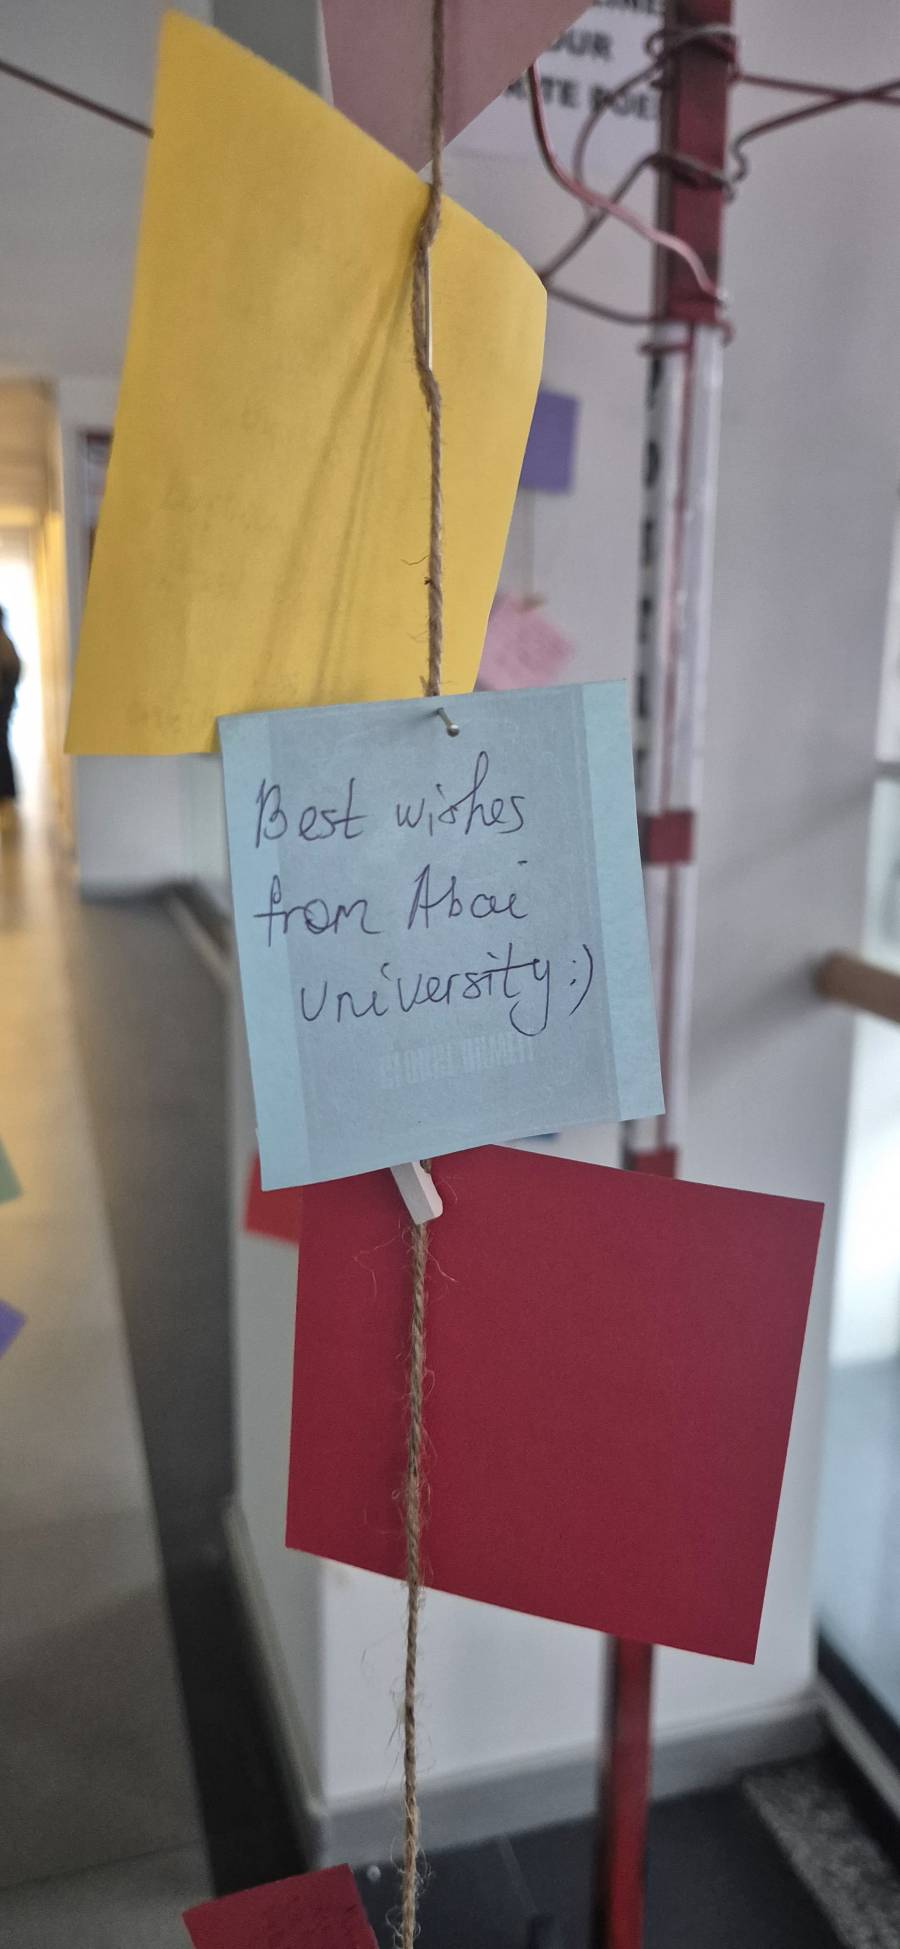 OUR
Best wishes
from Abai
University:)